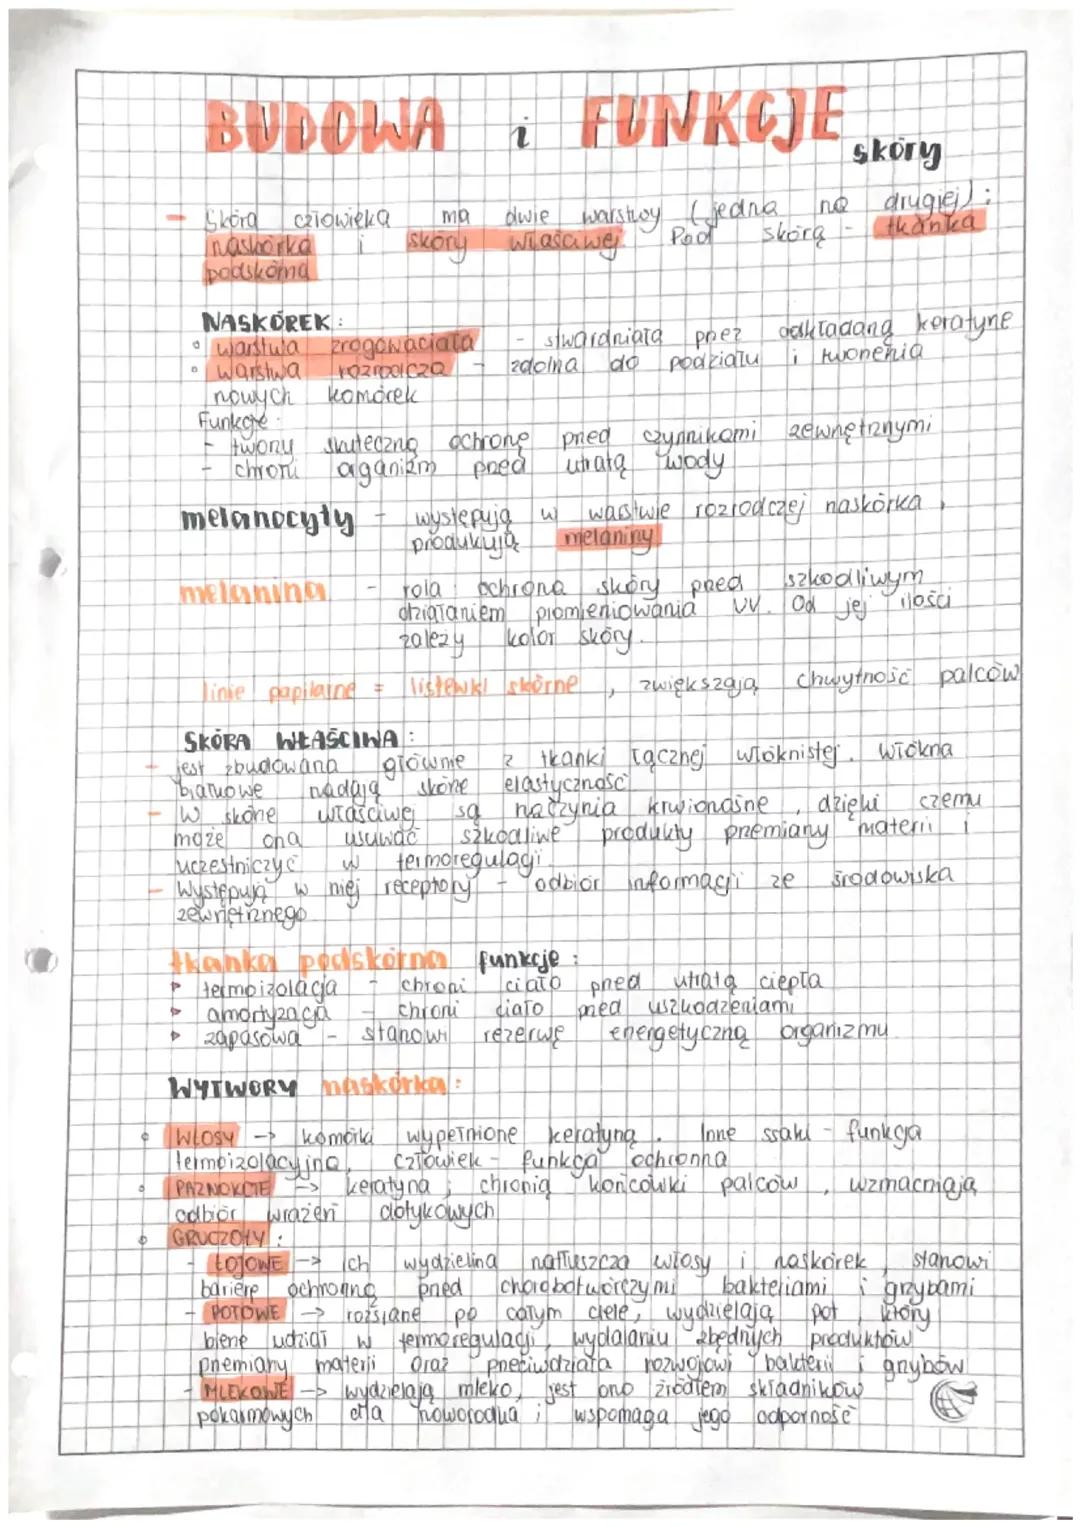 BUDOWA i FUNKCJE skóry
- Skóra człowieka ma dwie warstwy (jedna na drugiej):
naskórka i skóry właściwej. Pod skórą - tkanka
podskórna
NASKÓREK:
• warstwa zrogowaciała - stwardniała przez odkładaną keratynę
• warstwa rozrodcza - zdolna do podziału i tworzenia
nowych komórek
Funkcje:
- tworzy skuteczną ochronę przed czynnikami zewnętrznymi
- chroni organizm przed utratą wody
melanocyty - występują w warstwie rozrodczej naskórka,
produkują melaniny
melanina - rola: ochrona skóry przed szkodliwym
działaniem promieniowania UV. Od jej ilości
zależy kolor skóry.
linie papilarne = listewki skórne, zwiększają chwytność palców
SKÓRA WŁAŚCIWA:
- jest zbudowana głównie z tkanki łącznej włóknistej. Włókna
białkowe nadają skórze elastyczność
- W skórze właściwej są naczynia krwionośne, dzięki czemu
może ona usuwać szkodliwe produkty przemiany materii i
uczestniczyć w termoregulacji.
- Występują w niej receptory - odbiór informacji ze środowiska
zewnętrznego
tkanka podskórna funkcje:
▹ termoizolacja - chroni ciało przed utratą ciepła
▹ amortyzacja - chroni ciało przed uszkodzeniami
▹ zapasowa - stanowi rezerwę energetyczną organizmu.
WYTWORY naskórka:
• WŁOSY -> komórki wypełnione keratyną. Inne ssaki - funkcja
termoizolacyjna, człowiek - funkcja ochronna
• PAZNOKCIE -> keratyna; chronią końcówki palców, wzmacniają
odbiór wrażeń dotykowych
• GRUCZOŁY:
- ŁOJOWE -> ich wydzielina natłuszcza włosy i naskórek, stanowi
barierę ochronną przed chorobotwórczymi bakteriami i grzybami
- POTOWE -> rozsiane po całym ciele, wydzielają pot, który
bierze udział w termoregulacji, wydalaniu zbędnych produktów
przemiany materii oraz przeciwdziała rozwojowi bakterii i grzybów
- MLEKOWE -> wydzielają mleko, jest ono źródłem składników
pokarmowych dla noworodka i wspomaga jego odporność